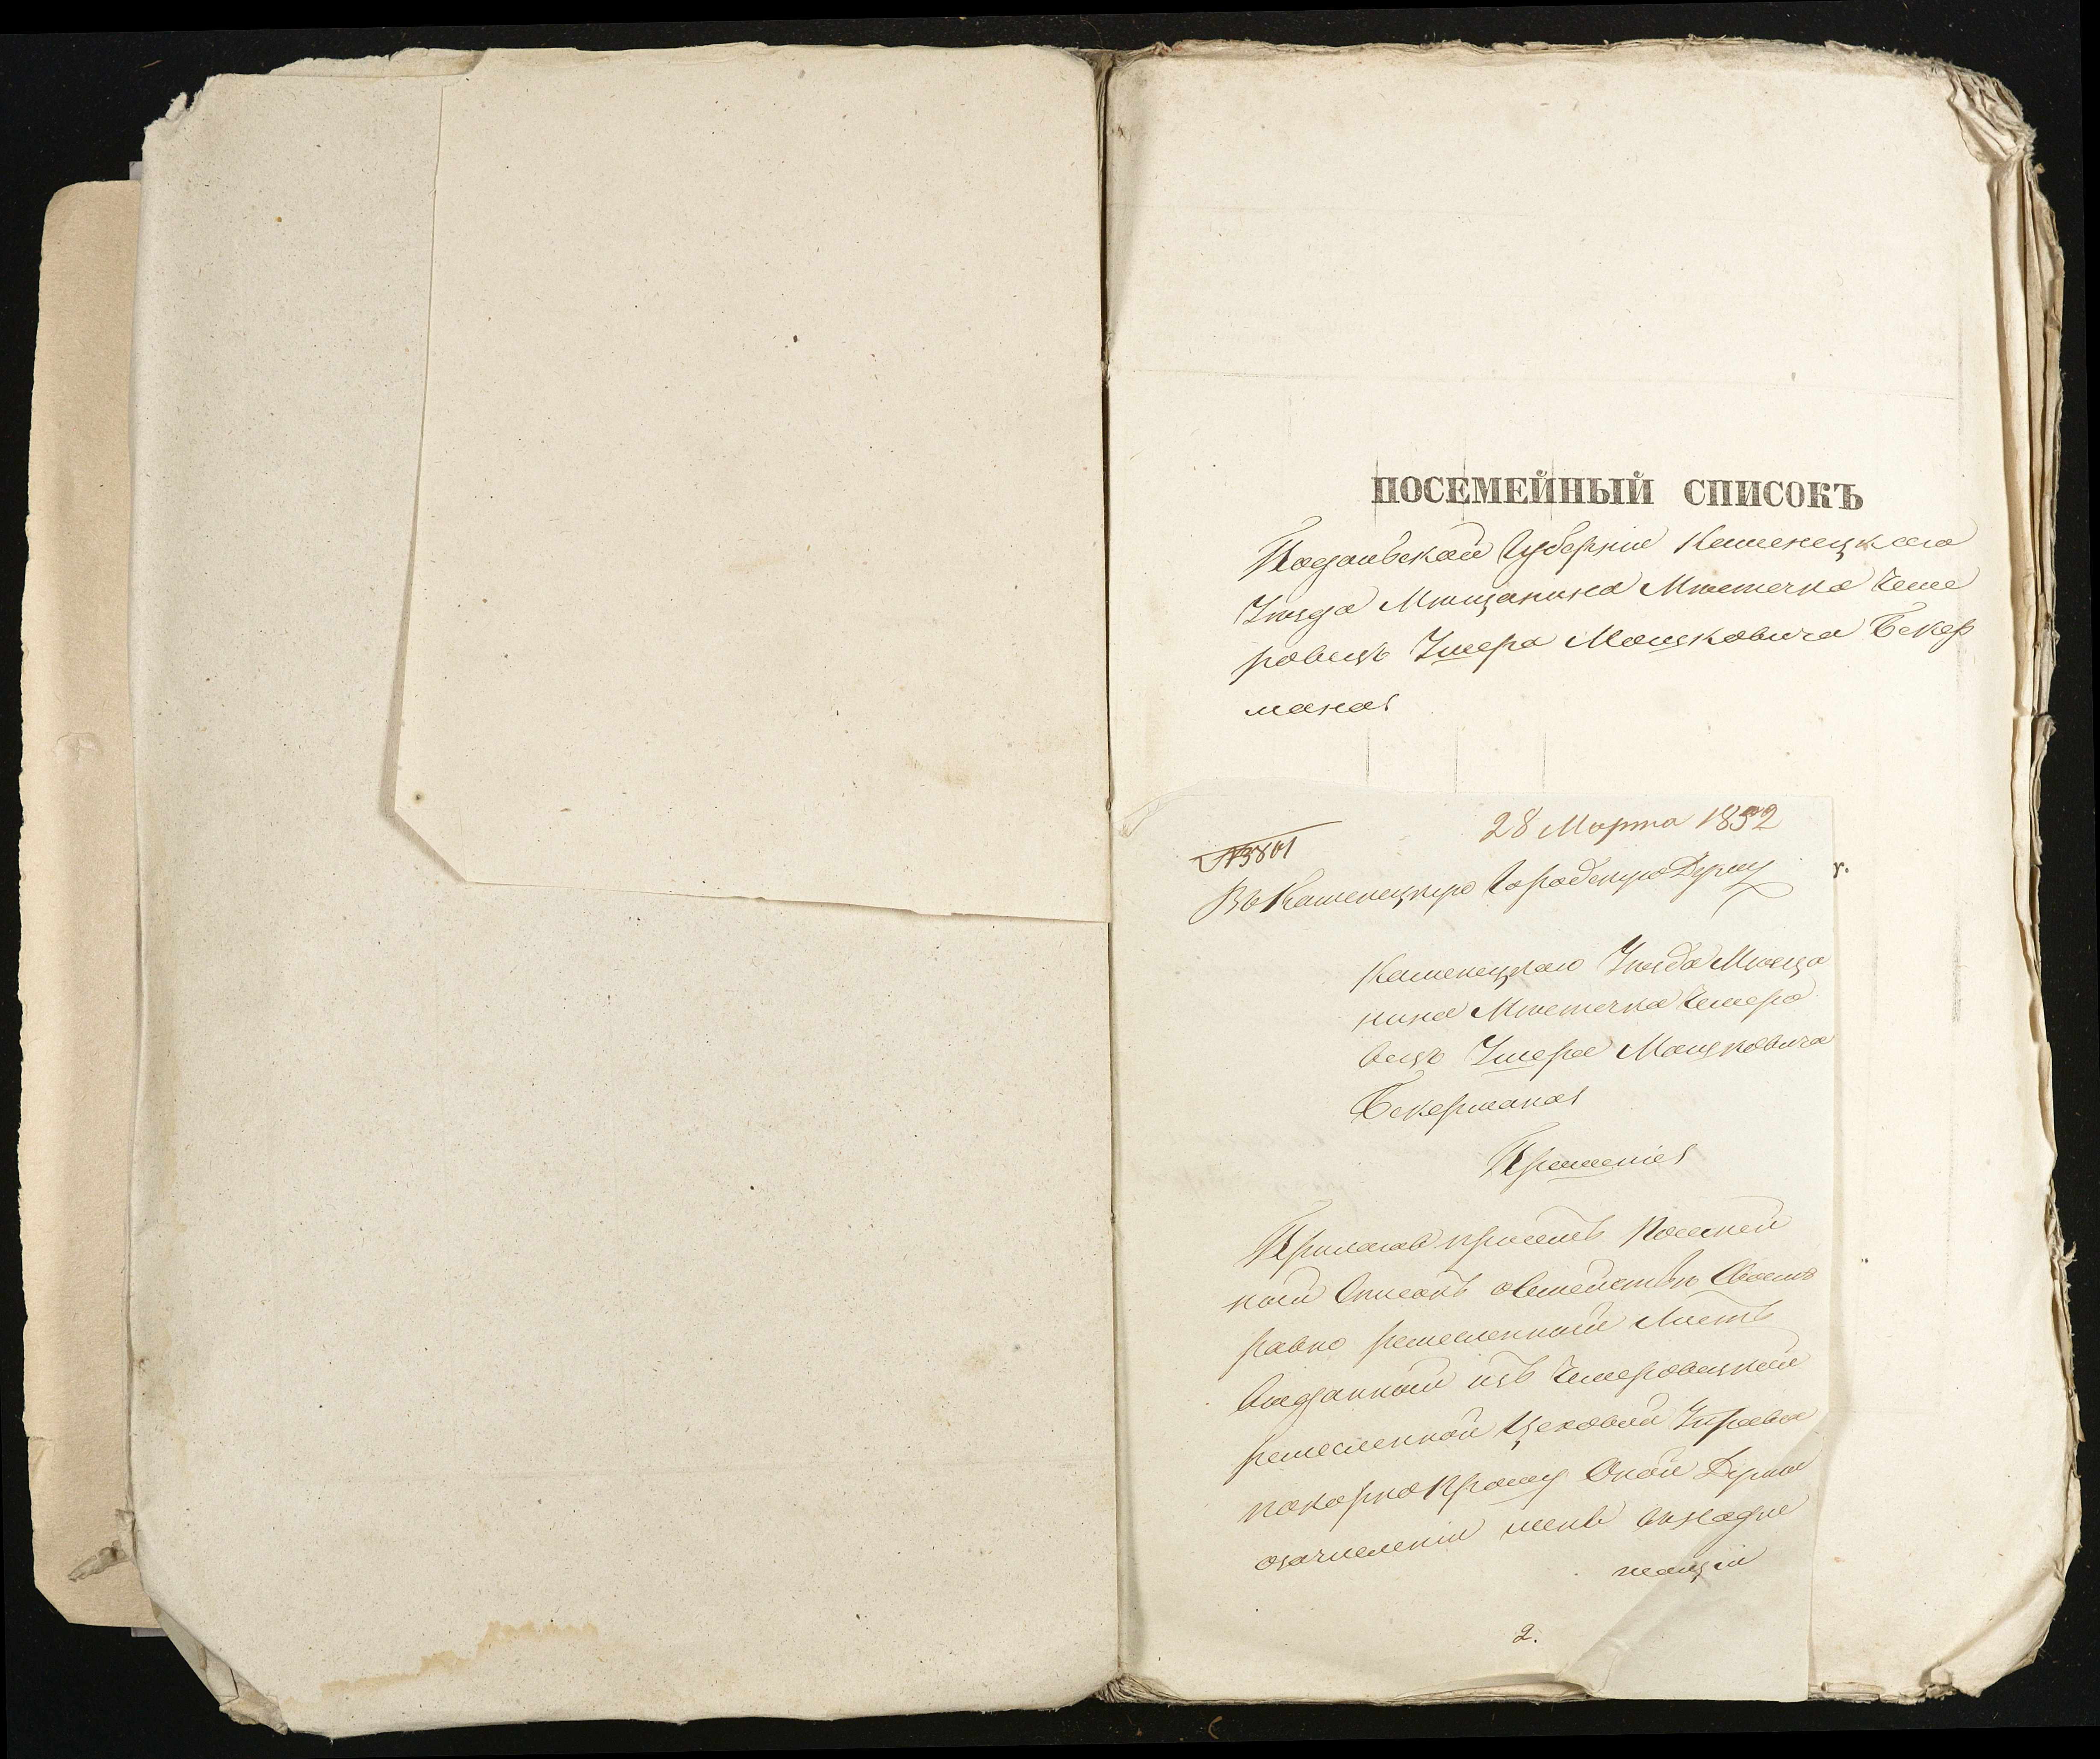 ПОСЕМЕЙНЫЙ СПИСОКЪ
Подольской Губерніи Каменецкаго
Уѣзда Мѣщанина Мѣстечка Чеме
ровецъ Умера Мошковича Бекер
мана
28 Марта 1852
№3801
Въ Каменецкую Городскую Думу
г.
Каменецкаго Уѣзда Мѣща
нина Мѣстечка Чемеро
вецъ Умера Мошковича
Бекермана
Прошеніе
Прилагая при семъ Посемей
ной Списокъ о Семействѣ Своемъ
равно ремесленной Листъ
выданной изъ Чемеровецкой
ремесленной Цеховой Управы
покорно Прошу Оной Думы
о зачисленіи меня
2.